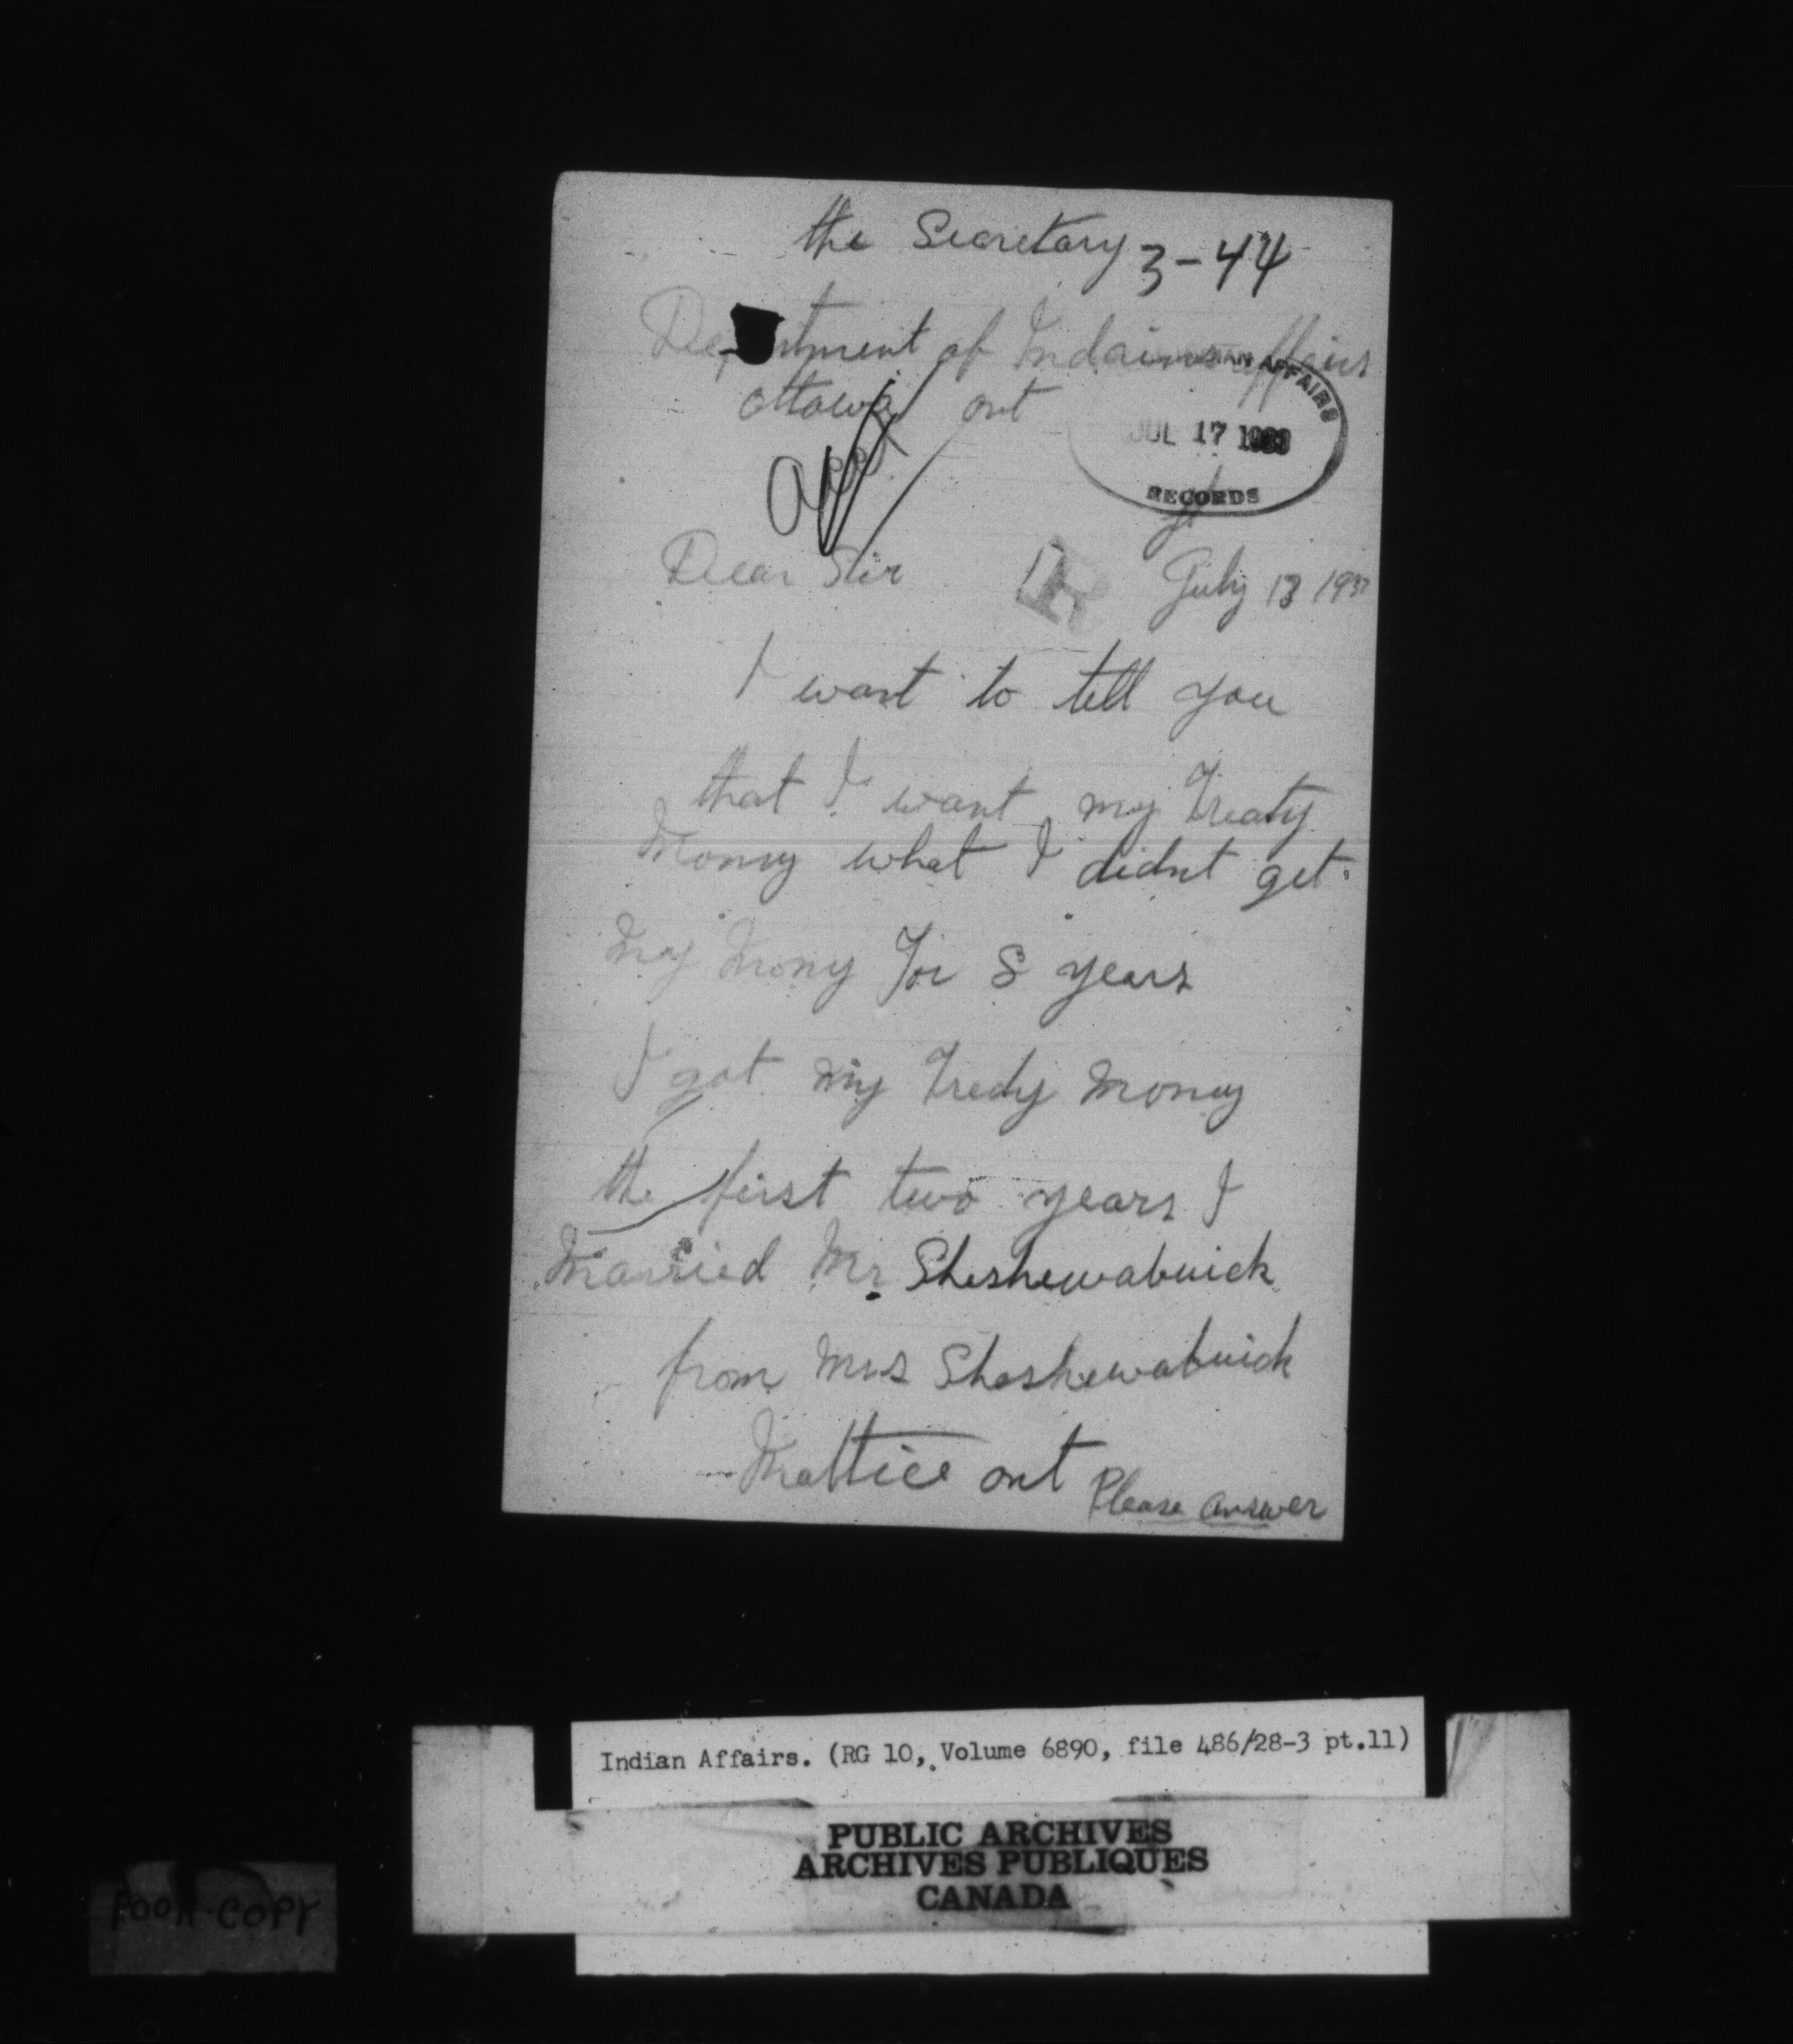 the Secretary 3-44
Deprtment of Indains affairs
ottawa ont
INDIAN AFFAIRS
JUL 17 193
RECORDS
Dear Sir July 13 193
I want to tell you
that I want my Treaty
Money what I didnt get.
my mony for 8 years
I got my Tredy money
the first two years I
Married Mr Sheshewabuick
from Mrs Sheshewabuick
Mattice ont
Please answer
Indian Affairs. (RG 10, Volume 6890, file 486/28-3 pt.11)
PUBLIC ARCHIVES
ARCHIVES PUBLIQUES
CANADA
POOR COPY